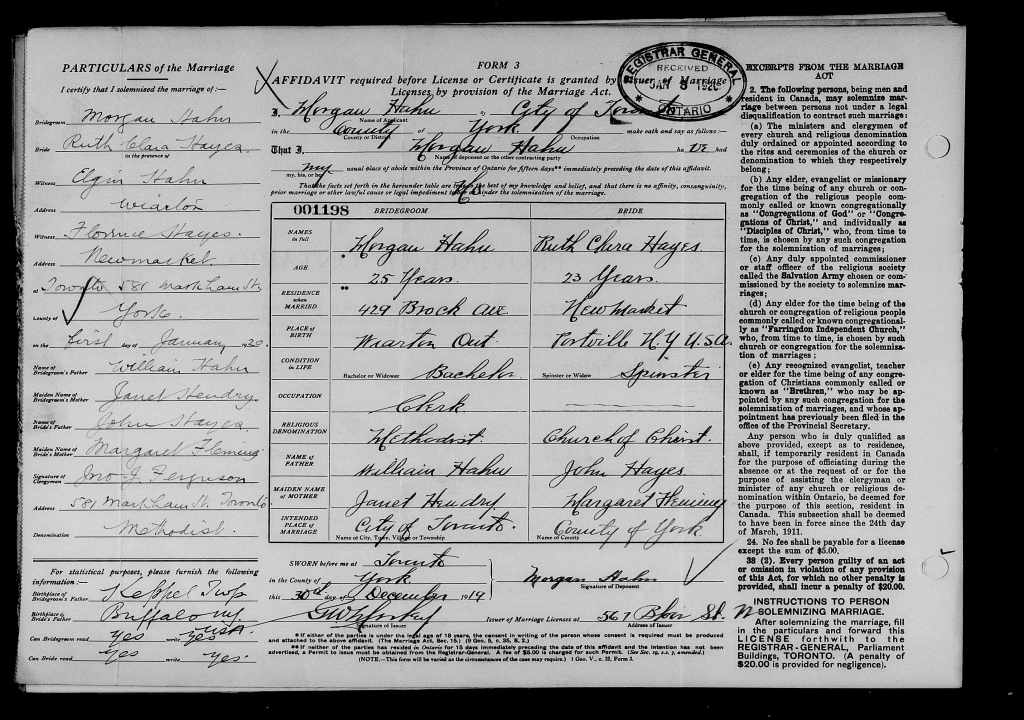 PARTICULARS of the Marriage
I certify that I solemnized the marriage of :—
Bridegroom Morgan Hahn
Bride Ruth Clara Hayes.
in the presence of
Witness Elgin Hahn
Address Wiarton
Witness Florence Hayes.
Address Newmarket
at Toronto 581 Markham St.
County of York.
on the first day of January 1920.
Name of Bridegroom's Father William Hahn
Maiden Name of Bridegroom's Mother Janet Hendry.
Name of Bride's Father John Hayes
Maiden Name of Bride's Mother Margaret Fleming
Signature of Clergyman Jno G Ferguson
Address 581 Markham St. Toronto
Denomination Methodist.
For statistical purposes, please furnish the following information:—
Birthplace of Bridegroom's Father Keppel Twp
Birthplace of Bride's Father Buffalo NY
Can Bridegroom read yes write yes
Can Bride read yes write yes.
FORM 3
AFFIDAVIT required before License or Certificate is granted by Issuer of Marriage
Licenses, by provision of the Marriage Act.
REGISTRAR GENERAL
RECEIVED
JAN 5 1920
ONTARIO
I, Morgan Hahn of City of Toronto
Name of Applicant
in the County of York. make oath and say as follows:—
County or District Occupation
That I, Morgan Hahn have had
Name of deponent or the other contracting party
my usual place of abode within the Province of Ontario for fifteen days** immediately preceding the date of this affidavit.
my, his, or her
That the facts set forth in the hereunder table are true to the best of my knowledge and belief, and that there is no affinity, consanguinity,
prior marriage or other lawful cause or legal impediment to bar or hinder the solemnization of the marriage.
001198 BRIDEGROOM BRIDE
NAMES in full Morgan Hahn Ruth Clara Hayes
AGE * 25 Years. 23 Years.
RESIDENCE when MARRIED ** 429 Brock Ave Newmarket
PLACE of BIRTH Wiarton Ont. Portville N.Y U.S.A.
CONDITION in LIFE Bachelor or Widower Bachelor Spinster or Widow Spinster
OCCUPATION Clerk —
RELIGIOUS DENOMINATION Methodist. Church of Christ.
NAME of FATHER William Hahn John Hayes
MAIDEN NAME of MOTHER Janet Hendry Margaret Fleming
INTENDED PLACE of MARRIAGE City of Toronto. County of York.
Name of City, Town, Village or Township Name of County
SWORN before me at Toronto
in the County of York
this 30th day of December 1919
Morgan Hahn
Signature of Deponent
Signature of Issuer
Issuer of Marriage Licenses at 567 Bloor St. W
Address of Issuer
* If either of the parties is under the legal age of 18 years, the consent in writing of the person whose consent is required must be produced
and attached to the above affidavit. (The Marriage Act, Sec. 15.) (9 Geo. 5, c. 35, S. 2.)
** If neither of the parties has resided in Ontario for 15 days immediately preceding the date of this affidavit and the intention has not been
advertised, a Permit to issue must be obtained from the Registrar-General. A fee of $5.00 is charged for such Permit.
(NOTE.—This form will be varied as the circumstances of the case may require.) 1 Geo. V., c. 32, Form 3.
EXCERPTS FROM THE MARRIAGE
ACT
2. The following persons, being men and
resident in Canada, may solemnize mar-
riage between persons not under a legal
disqualification to contract such marriage:
(a) The ministers and clergymen of
every church and religious denomination
duly ordained or appointed according to
the rites and ceremonies of the church or
denomination to which they respectively
belong;
(b) Any elder, evangelist or missionary
for the time being of any church or con-
gregation of the religious people com-
monly called or known congregationally
as "Congregations of God" or "Congre-
gations of Christ," and individually as
"Disciples of Christ," who, from time to
time, is chosen by any such congregation
for the solemnization of marriages;
(c) Any duly appointed commissioner
or staff officer of the religious society
called the Salvation Army chosen or com-
missioned by the society to solemnize mar-
riages;
(d) Any elder for the time being of the
church or congregation of religious people
commonly called or known congregational-
ly as "Farringdon Independent Church,"
who, from time to time, is chosen by such
church or congregation for the solemniza-
tion of marriages;
(e) Any recognized evangelist, teacher
or elder for the time being of any congre-
gation of Christians commonly called or
known as "Brethren," who may be ap-
pointed by any such congregation for the
solemnization of marriages, and whose ap-
pointment has previously been filed in the
office of the Provincial Secretary.
Any person who is duly qualified as
above provided, except as to residence,
shall, if temporarily resident in Canada
for the purpose of officiating during the
absence or at the request of or for the
purpose of assisting the clergyman or
minister of any church or religious de-
nomination within Ontario, be deemed for
the purpose of this section, resident in
Canada. This subsection shall be deemed
to have been in force since the 24th day
of March, 1911.
24. No fee shall be payable for a license
except the sum of $5.00.
38 (2). Every person guilty of an act
or omission in violation of any provision
of this Act, for which no other penalty is
provided, shall incur a penalty of $20.00.
INSTRUCTIONS TO PERSON
SOLEMNIZING MARRIAGE.
After solemnizing the marriage, fill
in the particulars and forward this
LICENSE forthwith to the
REGISTRAR-GENERAL, Parliament
Buildings, TORONTO. (A penalty of
$20.00 is provided for negligence).